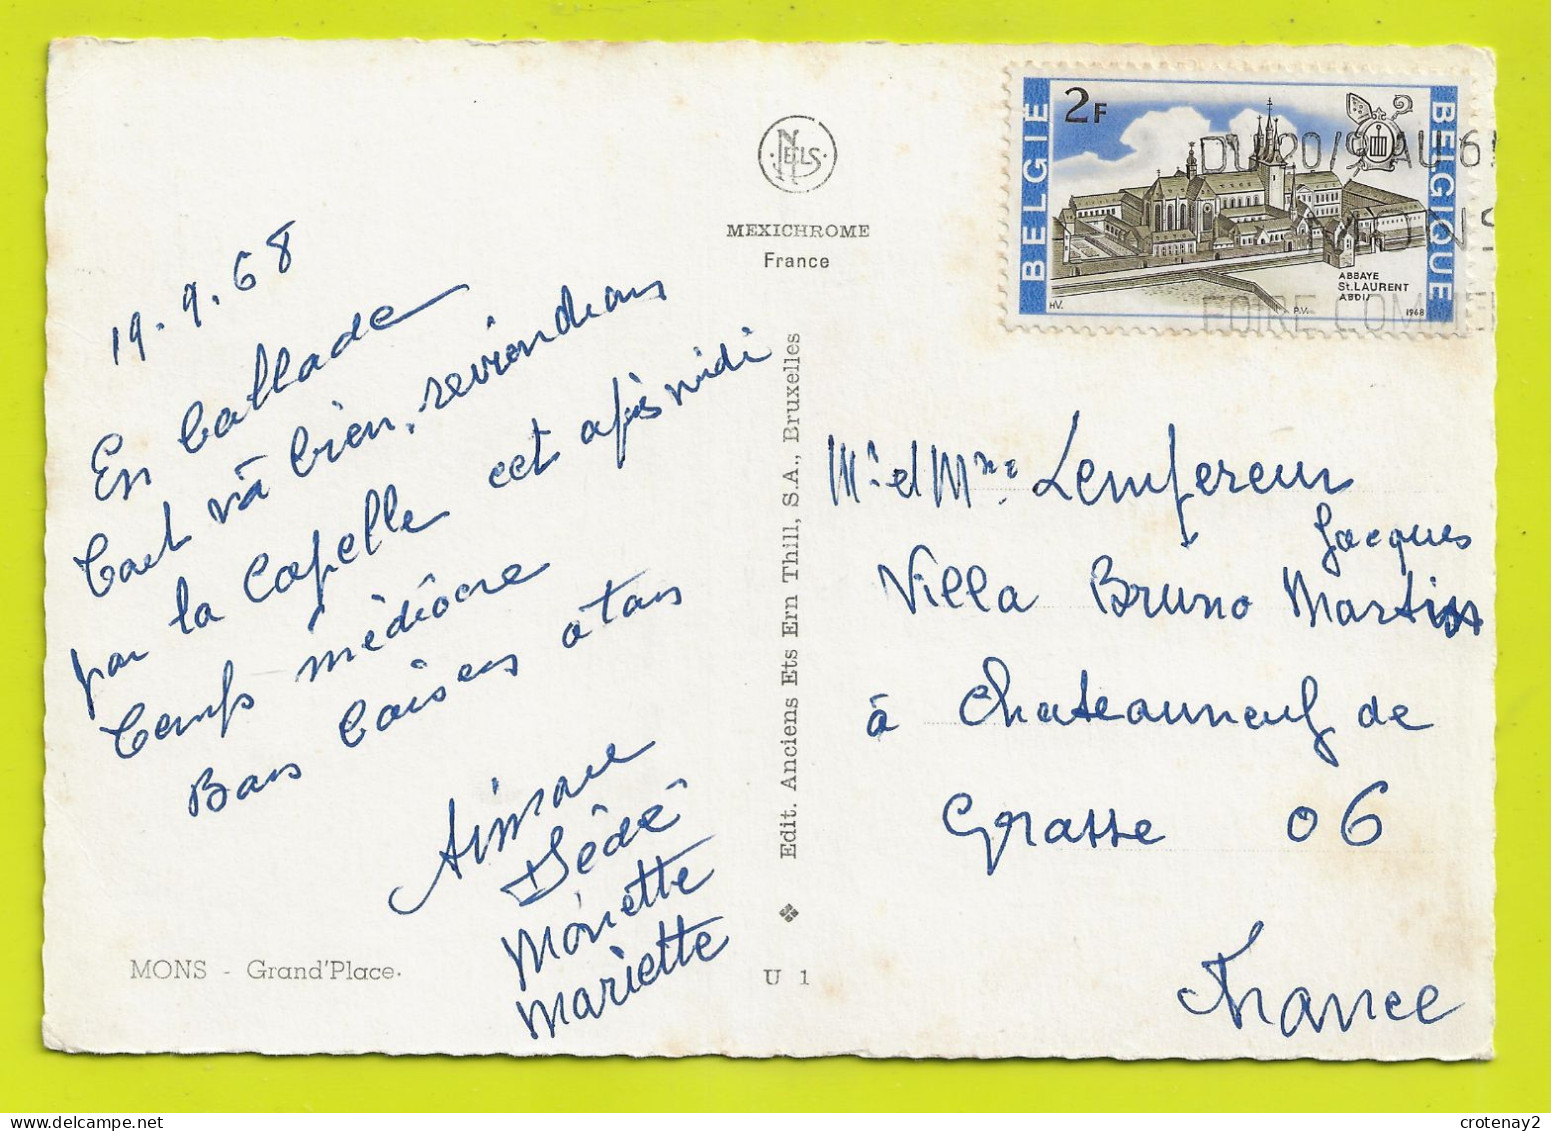 19.9.68
En ballade
tout va bien. reviendrons
par la Capelle cet après midi
temps médiocre
Bons baisers à tous
Dédé
Mariette
MONS - Grand'Place.
NELS
MEXICHROME
France
Edit. Anciens Ets Ern Thill, S.A., Bruxelles
U 1
BELGIE
2F
BELGIQUE
ABBAYE
St. LAURENT
ABDIJ
HV.
P.V.
1968
DU 20/9 AU 6
MONS
FOIRE COMME
Mr et Mme Lempereur
Jacques
Villa Bruno Martin
à Chateauneuf de
Grasse 06
France
crotenay2